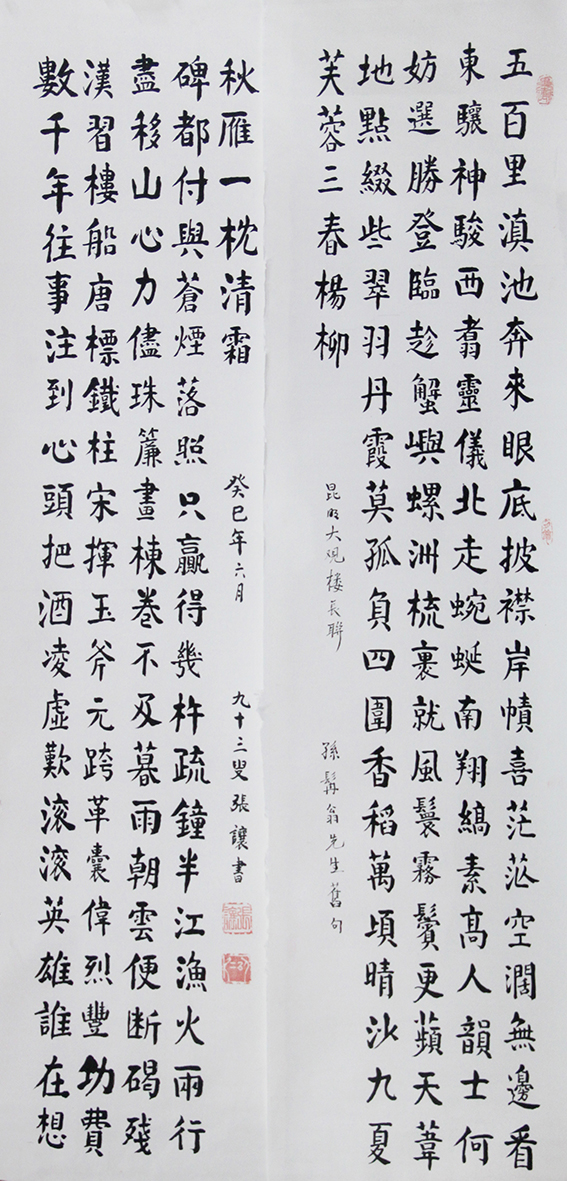 五百里滇池奔來眼底披襟岸幘喜茫茫空濶無邊看
東驤神駿西翥靈儀北走蜿蜒南翔縞素高人韻士何
妨選勝登臨趁蟹嶼螺洲梳裹就風鬟霧鬢更蘋天葦
地點綴些翠羽丹霞莫孤負四圍香稻萬頃晴沙九夏
芙蓉三春楊柳
昆明大观楼长聯
孫髯翁先生舊句
數千年往事注到心頭把酒凌虛歎滚滚英雄誰在想
漢習樓船唐標鐵柱宋揮玉斧元跨革囊偉烈豐功費
盡移山心力儘珠簾畫棟卷不及暮雨朝雲便断碣殘
碑都付與蒼煙落照只贏得幾杵疏鐘半江漁火兩行
秋雁一枕清霜
癸巳年六月
九十三叟張讓書